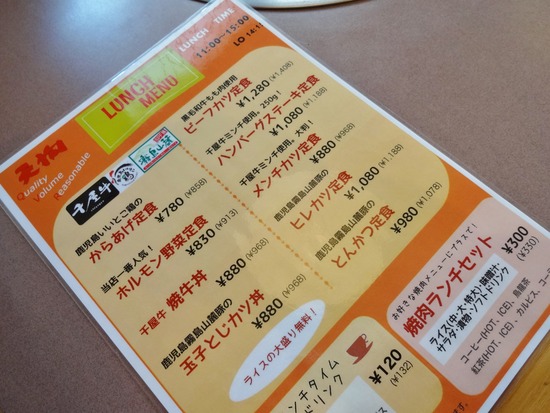 LUNCH MENU
LUNCH TIME
11:00~15:00
Quality
Volume
Reasonable
千屋牛
黒毛和牛もも肉使用
ビーフカツ定食
¥1,280 (¥1,408)
千屋牛ミンチ使用、250g!
ハンバーグステーキ定食
¥1,080 (¥1,188)
千屋牛ミンチ使用、大判!
メンチカツ定食
¥880 (¥968)
鹿児島霧島山麓豚の
ヒレカツ定食
¥1,080 (¥1,188)
鹿児島霧島山麓豚の
とんかつ定食
¥980 (¥1,078)
鹿児島いいとこ鶏の
からあげ定食
¥780 (¥858)
当店一番人気!
ホルモン野菜定食
¥830 (¥913)
千屋牛 焼牛丼
¥880 (¥968)
鹿児島霧島山麓豚の
玉子とじカツ丼
¥880 (¥968)
ライスの大盛り無料!
お好きな焼肉メニューにプラスで!
焼肉ランチセット
¥300 (¥330)
ライス(中・大・特大)・味噌汁
サラダ・漬物・ソフトドリンク
コーヒー(HOT、ICE)、烏龍茶
紅茶(HOT、ICE)、カルピス、コー
ンチタイム
ドリンク
¥120
(¥132)